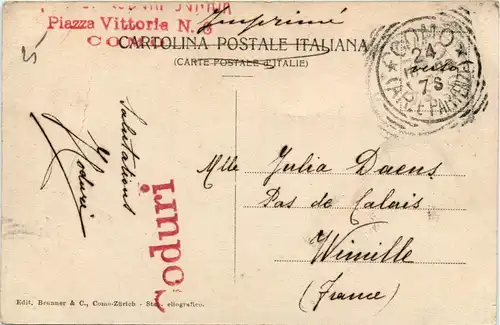 Piazza Vittoria N. 3
COMO
Imprimé
CARTOLINA POSTALE ITALIANA
(CARTE POSTALE D'ITALIE)
COMO
24
7S
25
Salutations
Coduri
Coduri
Mlle Julia Daens
Pas de Calais
Wimille
(France)
Edit. Brunner & C., Como-Zürich - Stab. eliografico.